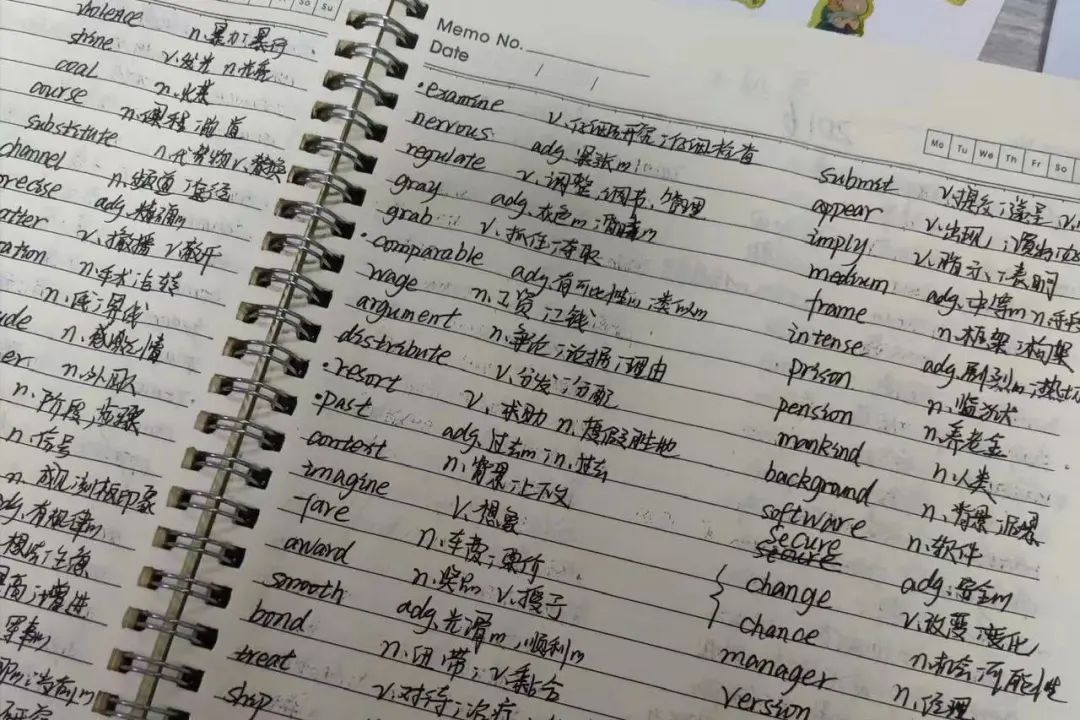 violence n.暴力;暴行
shine v.发光 n.光亮
coal n.火煤
course n.课程;道
substitute n.代替物 v.替换
channel n.频道;
precise adj.精确的
v.撒播 v.散开
n.手术;运转
n.底;界线
n.感激
n.外殴
n.阶段;步骤
n.信号
n.刻板印象
有规律的
Su
Memo No.
Date / /
Mo Tu We Th Fr Sa
·examine v.仔细研究;仔细检查
nervous adj.紧张的;
regulate v.调整,调节,管理
gray adj.灰色的;
grab v.抓住;夺取
·comparable adj.有可比性的,类似的
wage n.工资;工钱
argument n.争论;论据;理由
distribute v.分发;分配
·resort v.求助 n.度假胜地
·past adj.过去的;n.过去
context n.背景;上下文
imagine v.想象
fare n.车费;票价
award n.奖品 v.授予
smooth adj.光滑的,顺利的
bond n.纽带;v.黏合
treat v.对待;治疗
ship
submit v.提交;
appear v.出现;
imply v.暗示;表明
medium adj.中等的 n.
frame n.框架;构架
intense adj.剧烈的;
prison n.监狱
pension n.养老金
mankind n.人类
background n.背景;
software n.软件
secure adj.安全的
change v.改变;变化
chance n.机会;可能性
manager n.经理
version